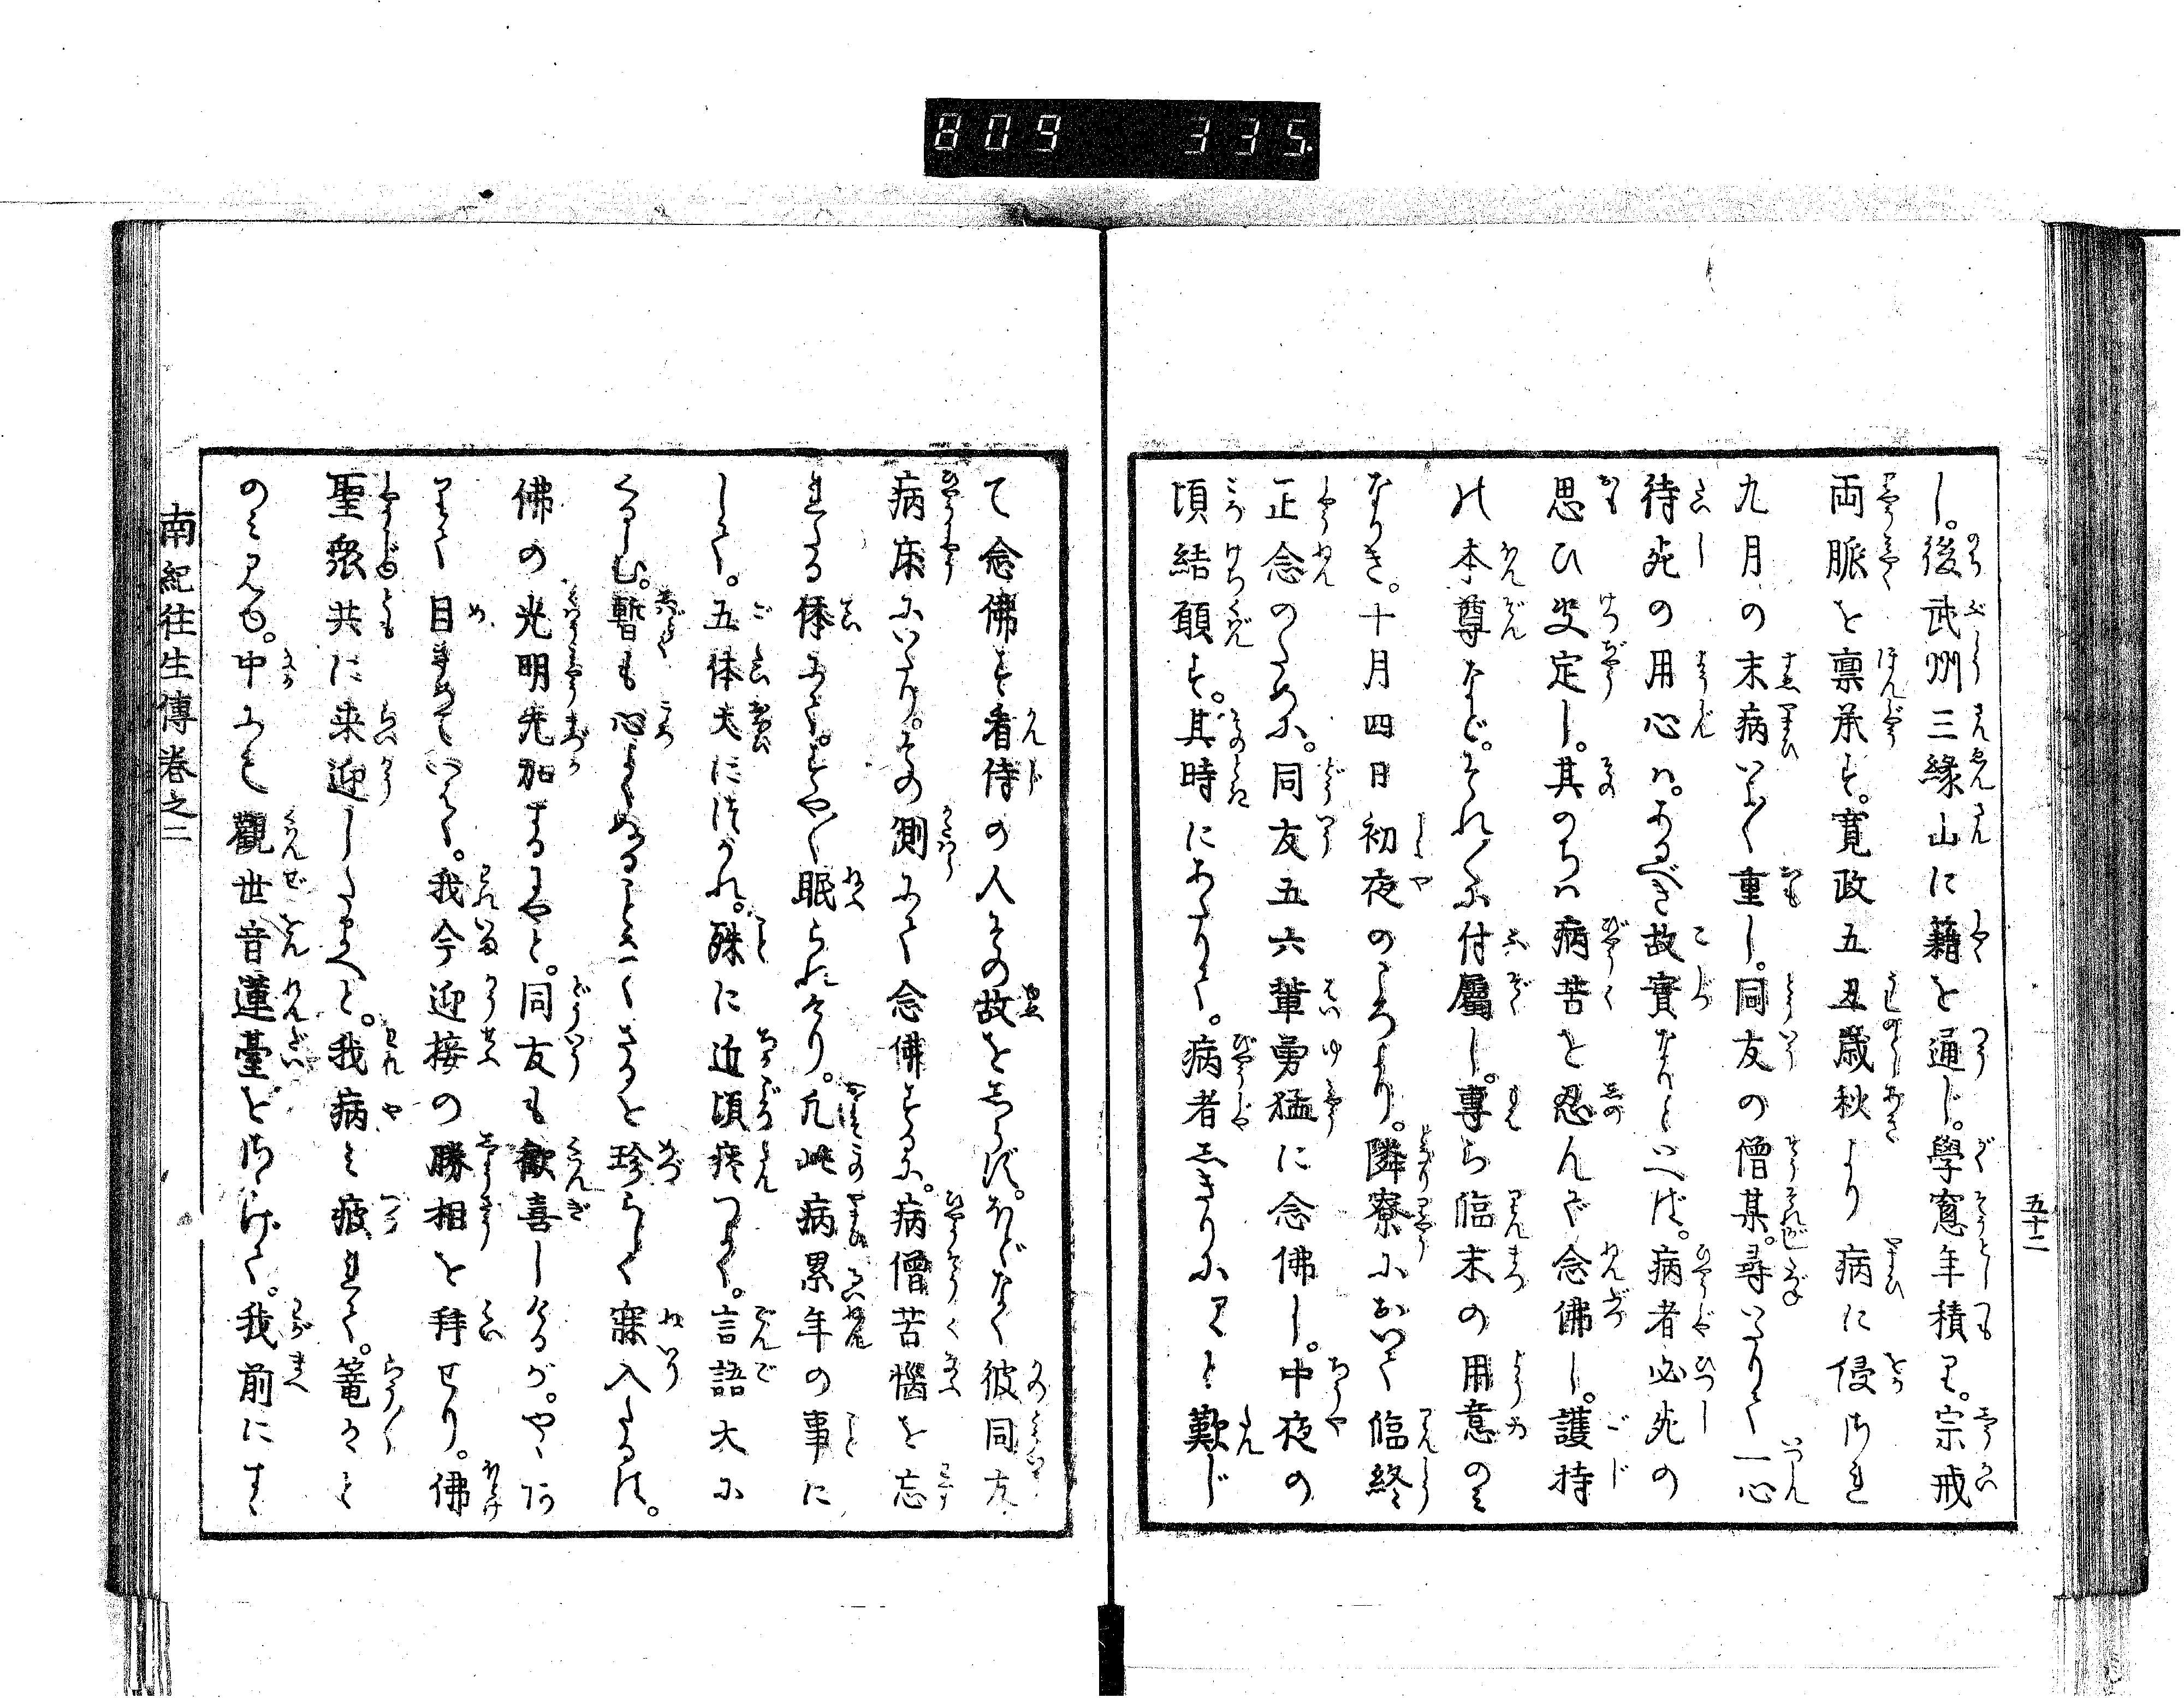 809 335.
五十二
し。後武州三縁山に籍を通じ。學窓年積り。宗戒
両脈を禀承す。寛政五丑歳秋より病に侵され
九月の末病いよ〳〵重し。同友の僧某。尋いたりて一心
待死の用心ハ。あるべき故實なりといへば。病者必死の
思ひ决定し。其のちハ病苦を忍んで念佛し。護持
の本尊など。それ〳〵に付屬し。專ら臨末の用意のミ
なりき。十月四日初夜のころより。隣寮において臨終
正念のために。同友五六輩勇猛に念佛し。中夜の
頃結願す。其時にあたりて。病者しきりに
て念佛す看侍の人その故をしらず。ほどなく彼同友
病床にいたり。その側にて念佛するに。病僧苦惱を忘
れたる体にて。すや〳〵眠られけり。凢此病累年の事に
して。五体夫につかれ。殊に近頃痰つよく。言語大に
くるしむ。暫も心よくぬることなくさるを珍らしく寐入たるは。
佛の光明先加するにやと。同友も歡喜しけるが。やゝ
りて目さめていはく。我今迎接の勝相を拜せり。佛
聖衆共に来迎したまへと。我病ミ疲れて。篭々と
のミ見ゆ。中にも觀世音蓮臺をさゝげて。我前にすゝ
南紀往生傳卷之二